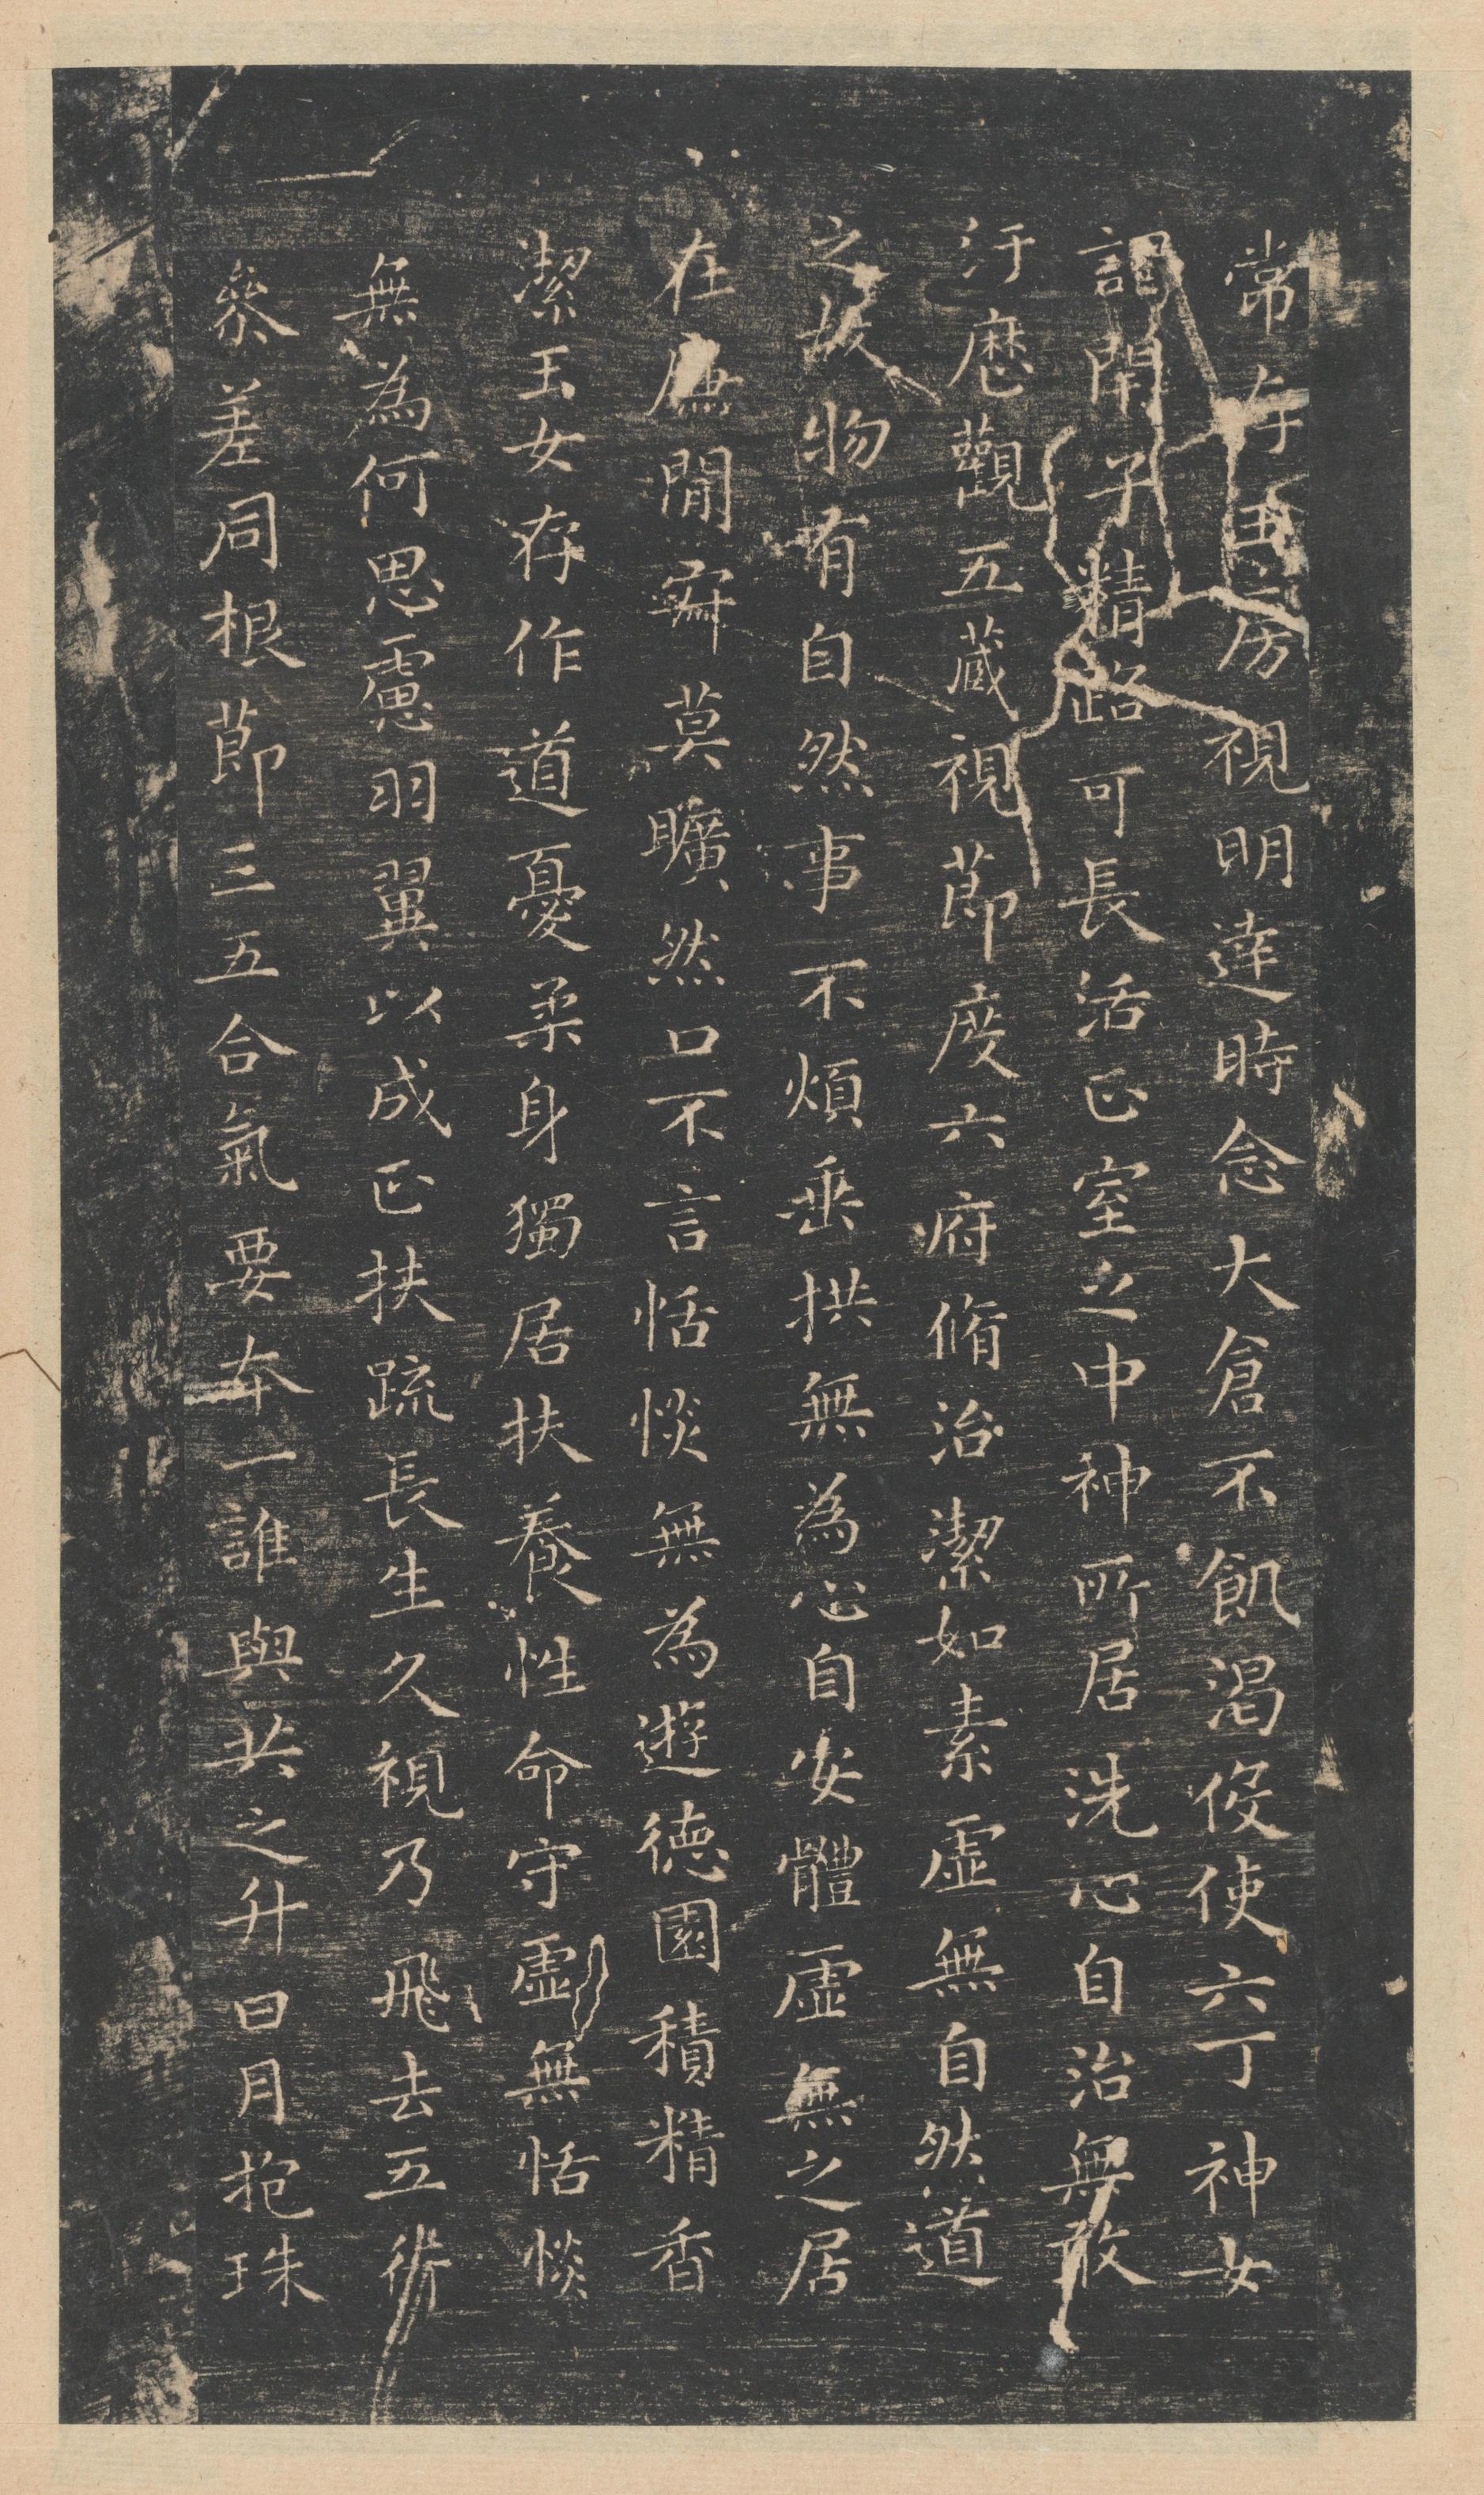 常存玉房視明達時念大倉不飢渴役使六丁神女
謁閉子精路可長活正室之中神所居洗心自治無敢
汙歷觀五藏視節度六府脩治潔如素虛無自然道
之故物有自然事不煩垂拱無為心自安體虛無之居
在廉間寂莫曠然口不言恬惔無為遊德園積精香
潔玉女存作道憂柔身獨居扶養性命守虛無恬惔
無為何思慮羽翼以成正扶疏長生久視乃飛去五行
參差同根節三五合氣要本一誰與共之升日月抱珠